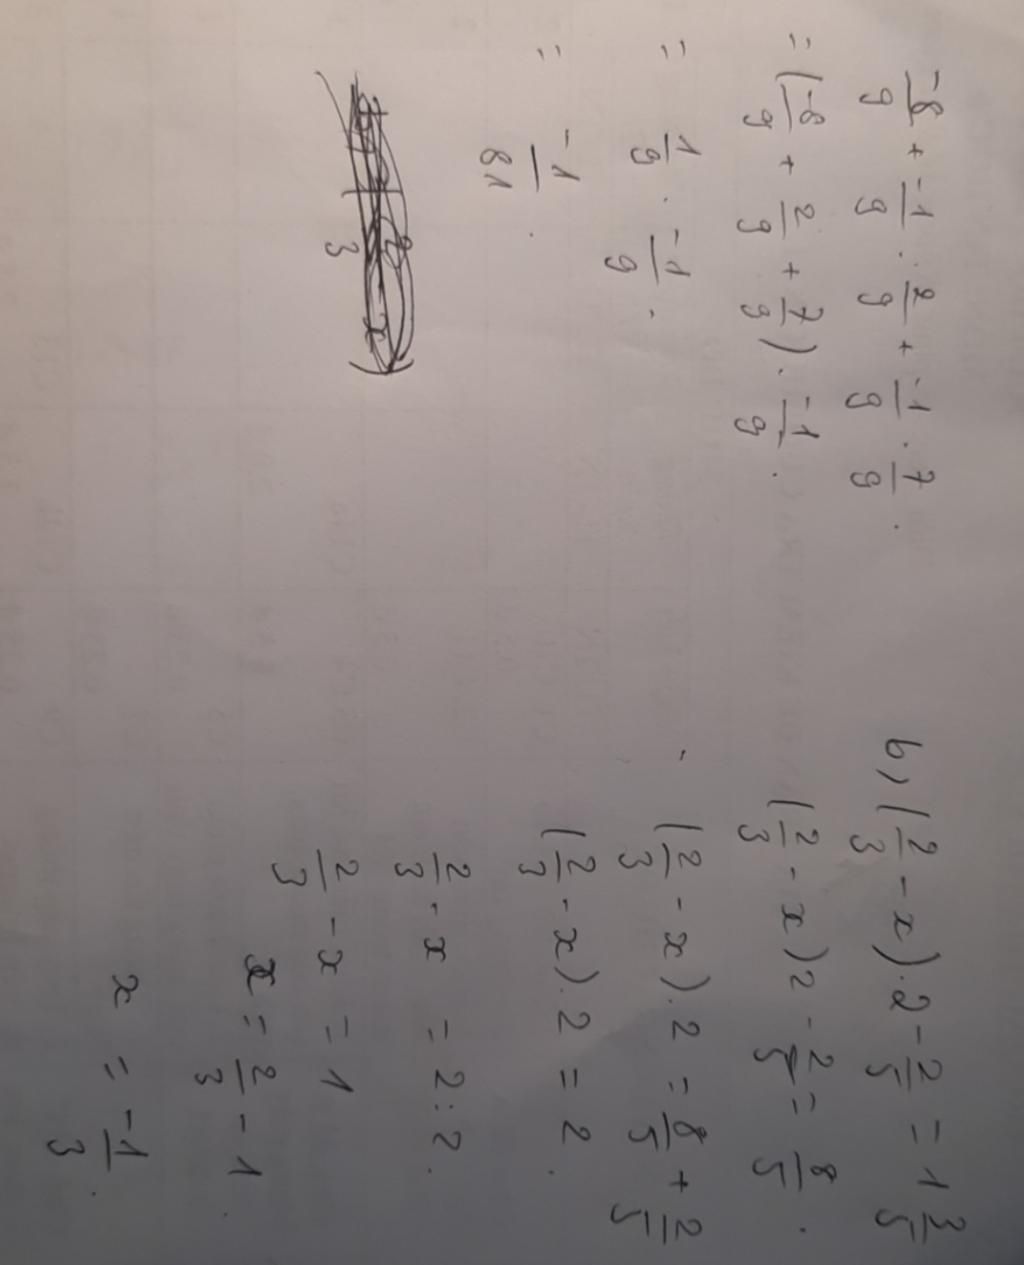 -8/9 + -1/9 . 2/9 + -1/9 . 7/9 .
= (-8/9 + 2/9 + 7/9) . -1/9 .
= 1/9 . -1/9 .
= -1/81 .
b) (2/3 - x) . 2 - 2/5 = 1 3/5
(2/3 - x) 2 - 2/5 = 8/5 .
(2/3 - x) . 2 = 8/5 + 2/5
(2/3 - x) . 2 = 2 .
2/3 - x = 2 : 2 .
2/3 - x = 1
x = 2/3 - 1 .
x = -1/3 .